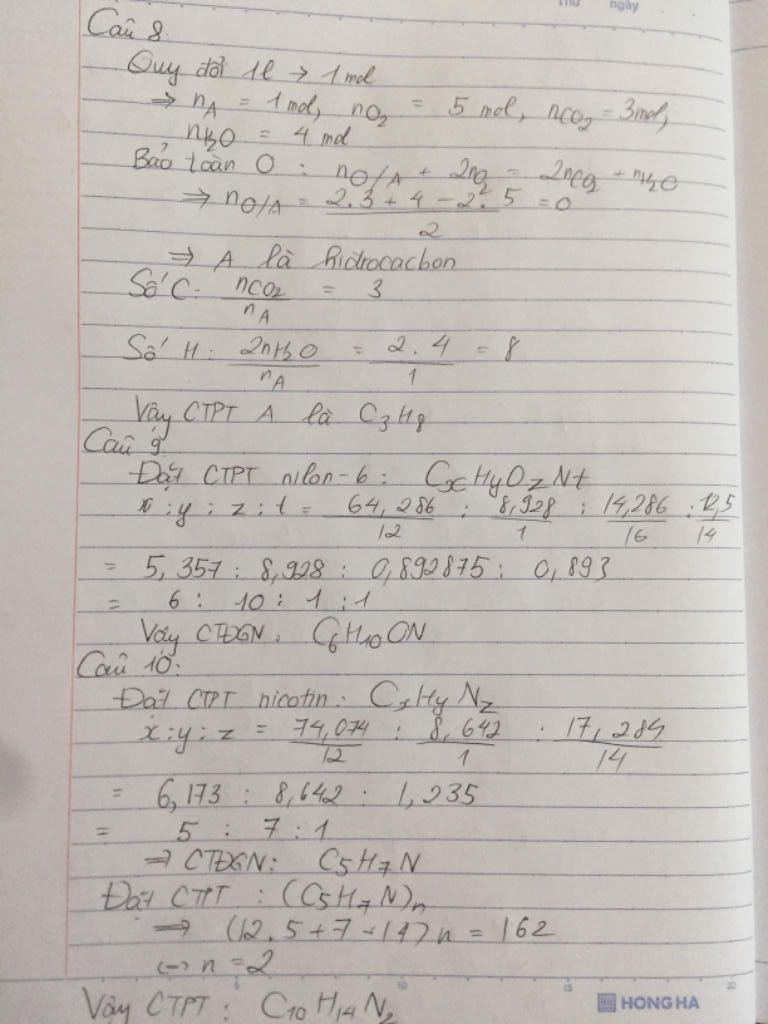 Thứ ngày
Câu 8
Quy đổi 1l → 1 mol
⇒ nA = 1 mol, nO2 = 5 mol, nCO2 = 3 mol,
nH2O = 4 mol
Bảo toàn O : nO/A + 2nO2 = 2nCO2 + nH2O
⇒ nO/A = (2.3 + 4 - 2.5)/2 = 0
⇒ A là hidrocacbon
Số C: nCO2/nA = 3
Số H: 2nH2O/nA = 2.4/1 = 8
Vậy CTPT A là C3H8
Câu 9
Đặt CTPT nilon-6 : CxHyOzNt
x : y : z : t = 64,286/12 : 8,928/1 : 14,286/16 : 12,5/14
= 5,357 : 8,928 : 0,892875 : 0,893
= 6 : 10 : 1 : 1
Vậy CTĐGN : C6H10ON
Câu 10:
Đặt CTPT nicotin : CxHyNz
x : y : z = 74,074/12 : 8,642/1 : 17,284/14
= 6,173 : 8,642 : 1,235
= 5 : 7 : 1
⇒ CTĐGN : C5H7N
Đặt CTPT : (C5H7N)n
⇒ (12.5 + 7 + 14) n = 162
↔ n = 2
5 10 15 20
Vậy CTPT : C10H14N2
HONG HA